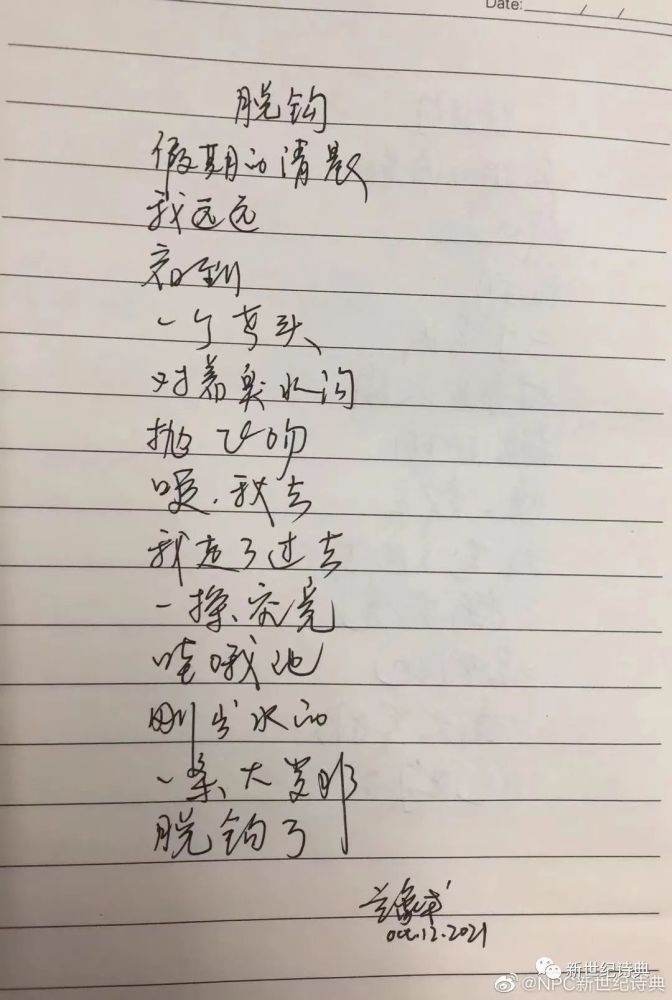 Date: / /
脱钩
假期的清晨
我远远
到
一个老头
对着臭水沟
抛飞吻
我去
我走了过去
一探究竟
哇哦 他
刚出水的
一条大罗非
脱钩了
Oct.12.2021
新世纪诗典
@NPC新世纪诗典